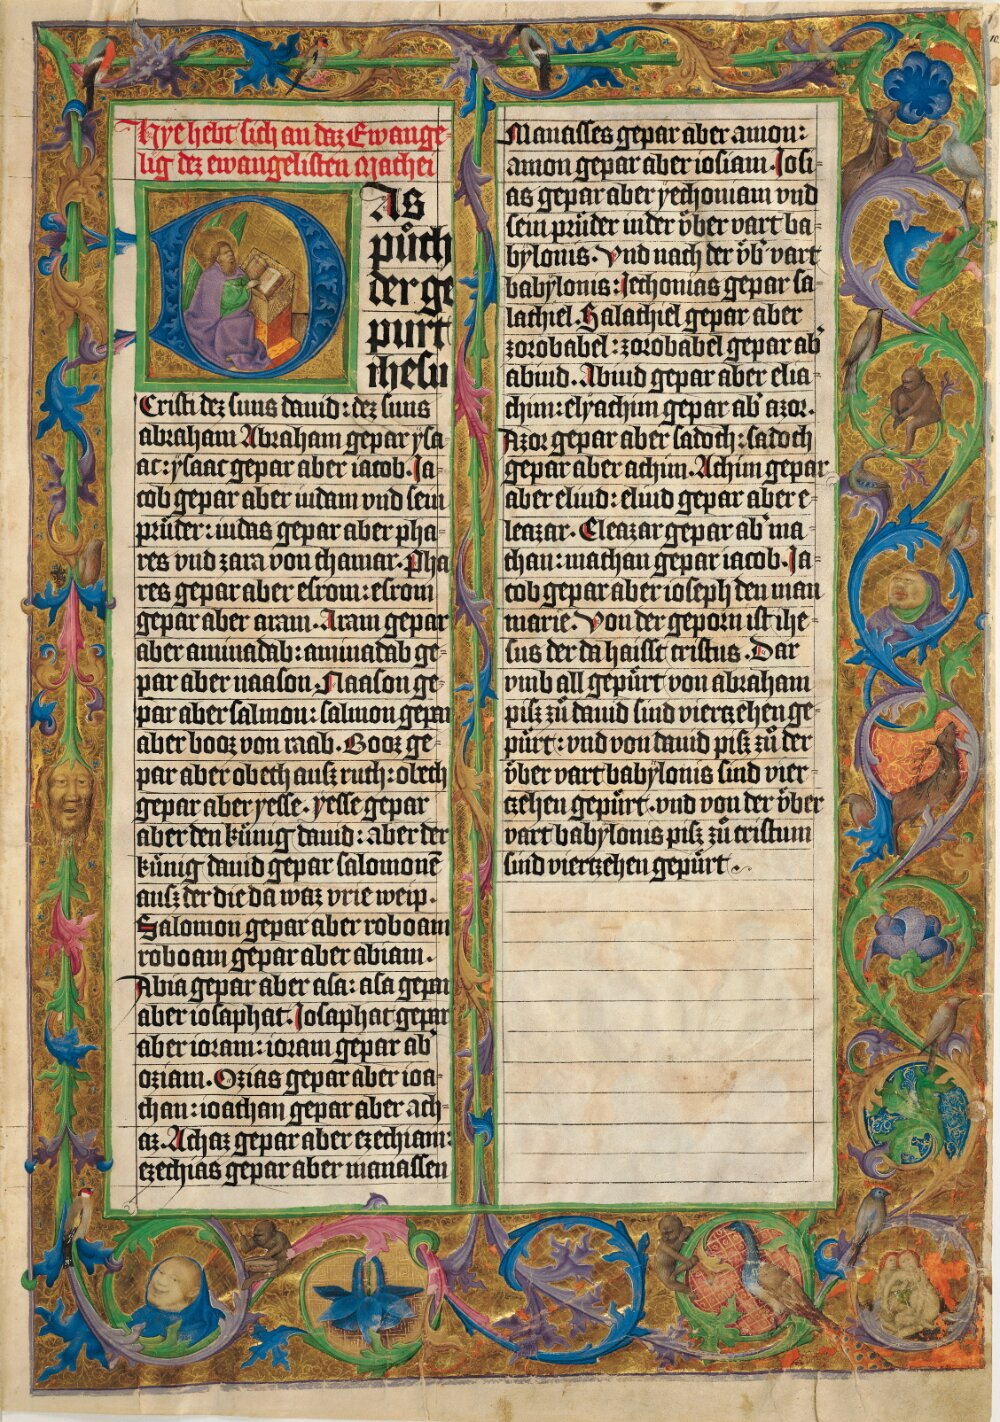 Hye hebt sich an daz Ewange-
lig dez ewangelisten Machei
DAS
půch
der ge
purt
ihesu
Cristi dez suns dauid: dez suns
abraham Abraham gepar ysa-
ac: ysaac gepar aber iacob. Ja-
cob gepar aber iudam vnd sein
prüder: iudas gepar aber pha-
res vnd zara von thamar. Pha
res gepar aber esrom: esrom
gepar aber aram. Aram gepar
aber aminadab: aminadab ge-
par aber naason. Naason ge-
par aber salmon: salmon gepar
aber booz von raab. Booz ge-
par aber obeth ausz ruth: obeth
gepar aber yesse. yesse gepar
aber den künig dauid: aber der
künig dauid gepar salomonē
ausz der die da waz vrie weip.
Salomon gepar aber roboam
roboam gepar aber abiam.
Abia gepar aber asa: asa gepar
aber iosaphat. Josaphat gepar
aber ioram: ioram gepar ab̾
oziam. Ozias gepar aber ioa-
than: ioathan gepar aber ach-
az. Achaz gepar aber ezechiam:
ezechias gepar aber manassen
Manasses gepar aber amon:
amon gepar aber iosiam. Josi-
as gepar aber yechoniam vnd
sein prüder in der über vart ba-
bylonis. Vnd nach der üb̾ vart
babylonis: Jechonias gepar sa-
lathiel. Salathiel gepar aber
zorobabel: zorobabel gepar ab̾
abiud. Abiud gepar aber elia-
chim: elyachim gepar ab̾ azor.
Azor gepar aber sadoch: sadoch
gepar aber achim. Achim gepar
aber eliud: eliud gepar aber e-
leazar. Eleazar gepar ab̾ ma-
than: mathan gepar iacob. Ja-
cob gepar aber ioseph den man
marie. Von der geporn ist ihe-
sus der da haisst cristus. Dar
vmb all gepürt von abraham
pisz zů dauid sind viertzehen ge-
pürt: vnd von dauid pisz zů der
über vart babylonis sind vier-
tzehen gepürt. vnd von der über
vart babylonis pisz zů cristum
sind viertzehen gepürt.